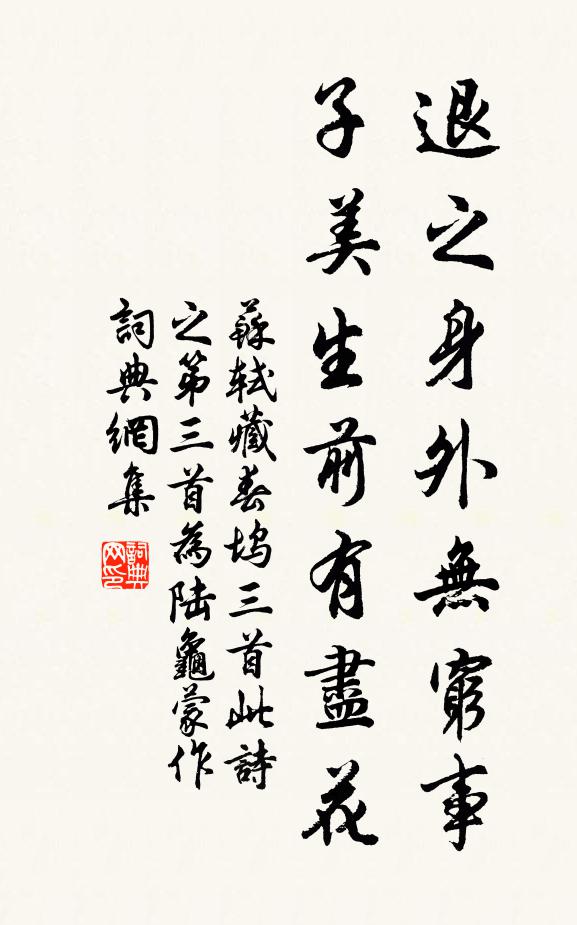 退之身外無窮事
子美生前有盡花
蘇軾藏春塢三首此詩
之第三首為陸龜蒙作
詞典網集
詞典
网印